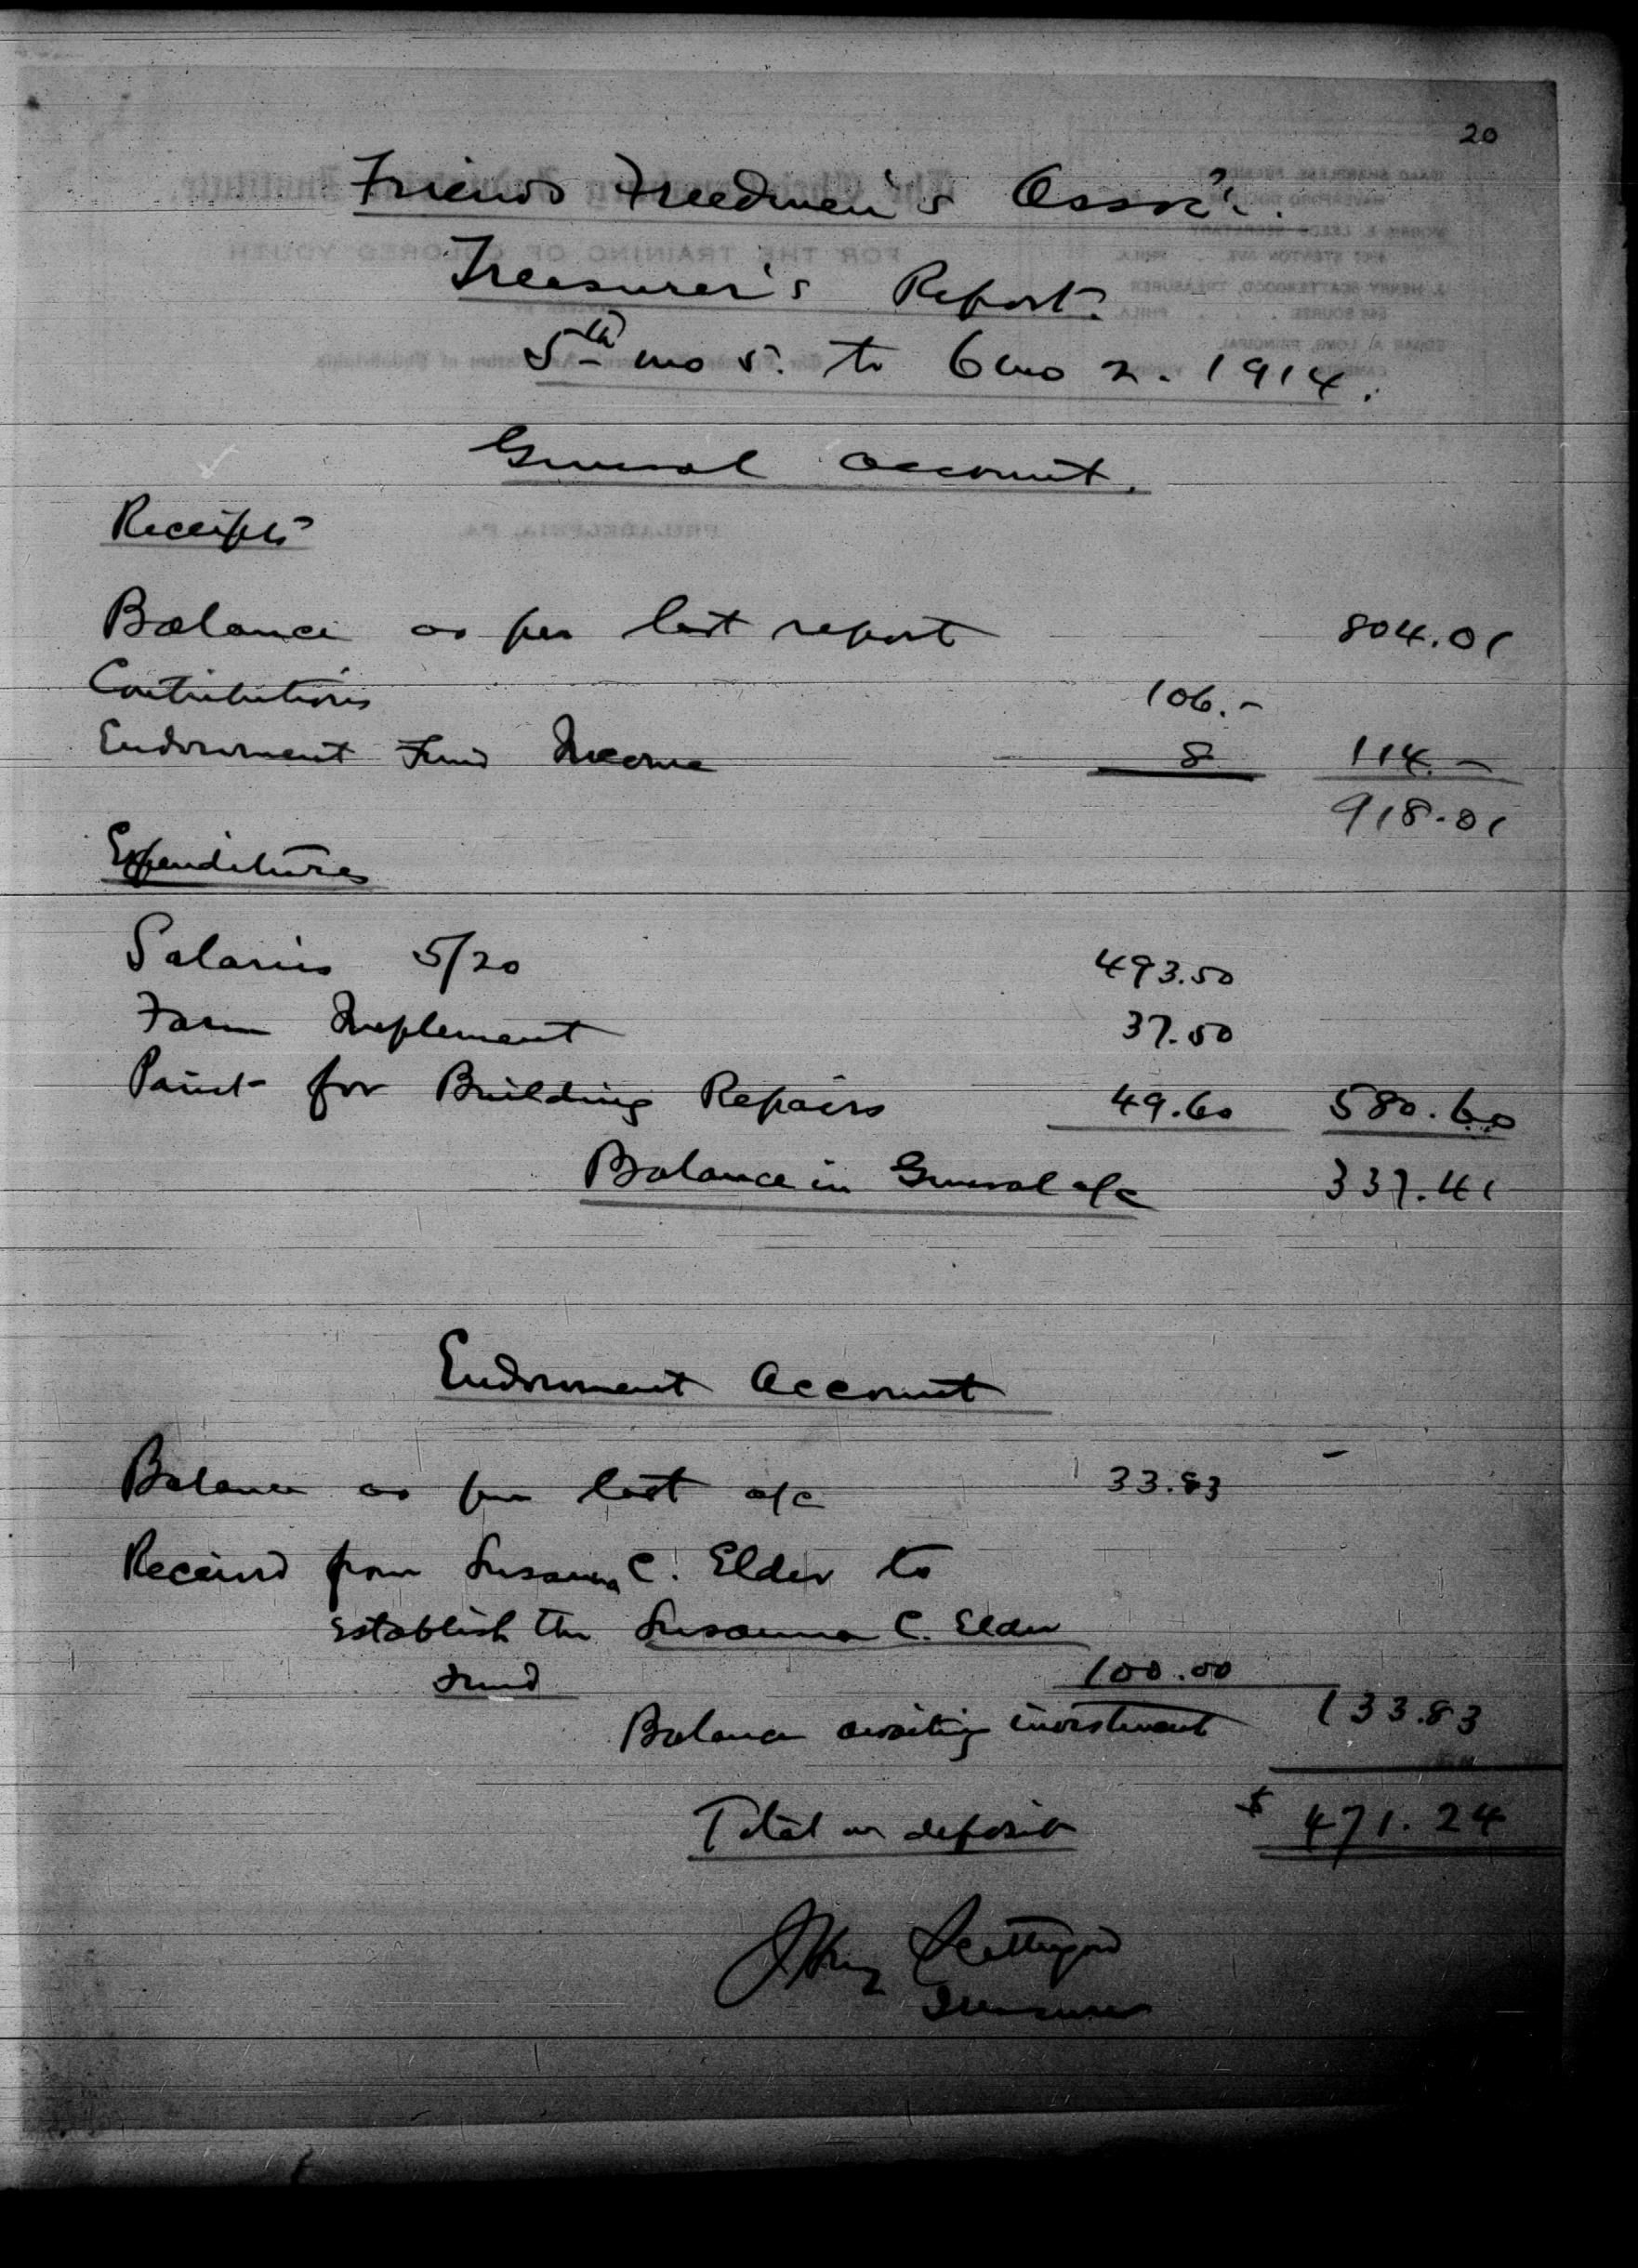 20
Friends Freedmen's Assoc'n.
Treasurer's Report.
5th mo 5. to 6mo 2. 1914.
General Account.
Receipts
Balance as per last report 804.01
Contributions 106.-
Endowment Fund Income 8 114.-
918.01
Expenditures
Salaries 5/20 493.50
Farm Implement 37.50
Paint for Building Repairs 49.60 580.60
Balance in General a/c 337.41
Endowment Account
Balance as per last a/c 33.83
Received from Susanna C. Elder to
establish the Susanna C. Elder
Fund 100.00
Balance awaiting investment 133.83
Total on deposit $ 471.24
J Henry Scattergood
Treasurer